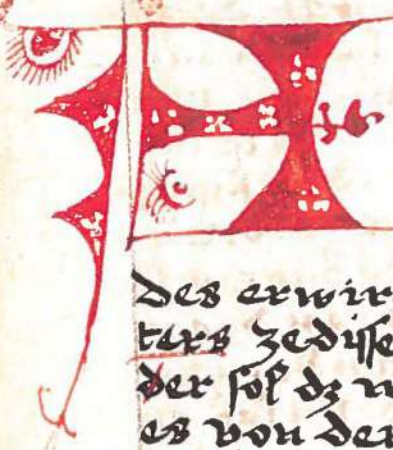 des erwir
ters zedisse
der sol dz
es von der